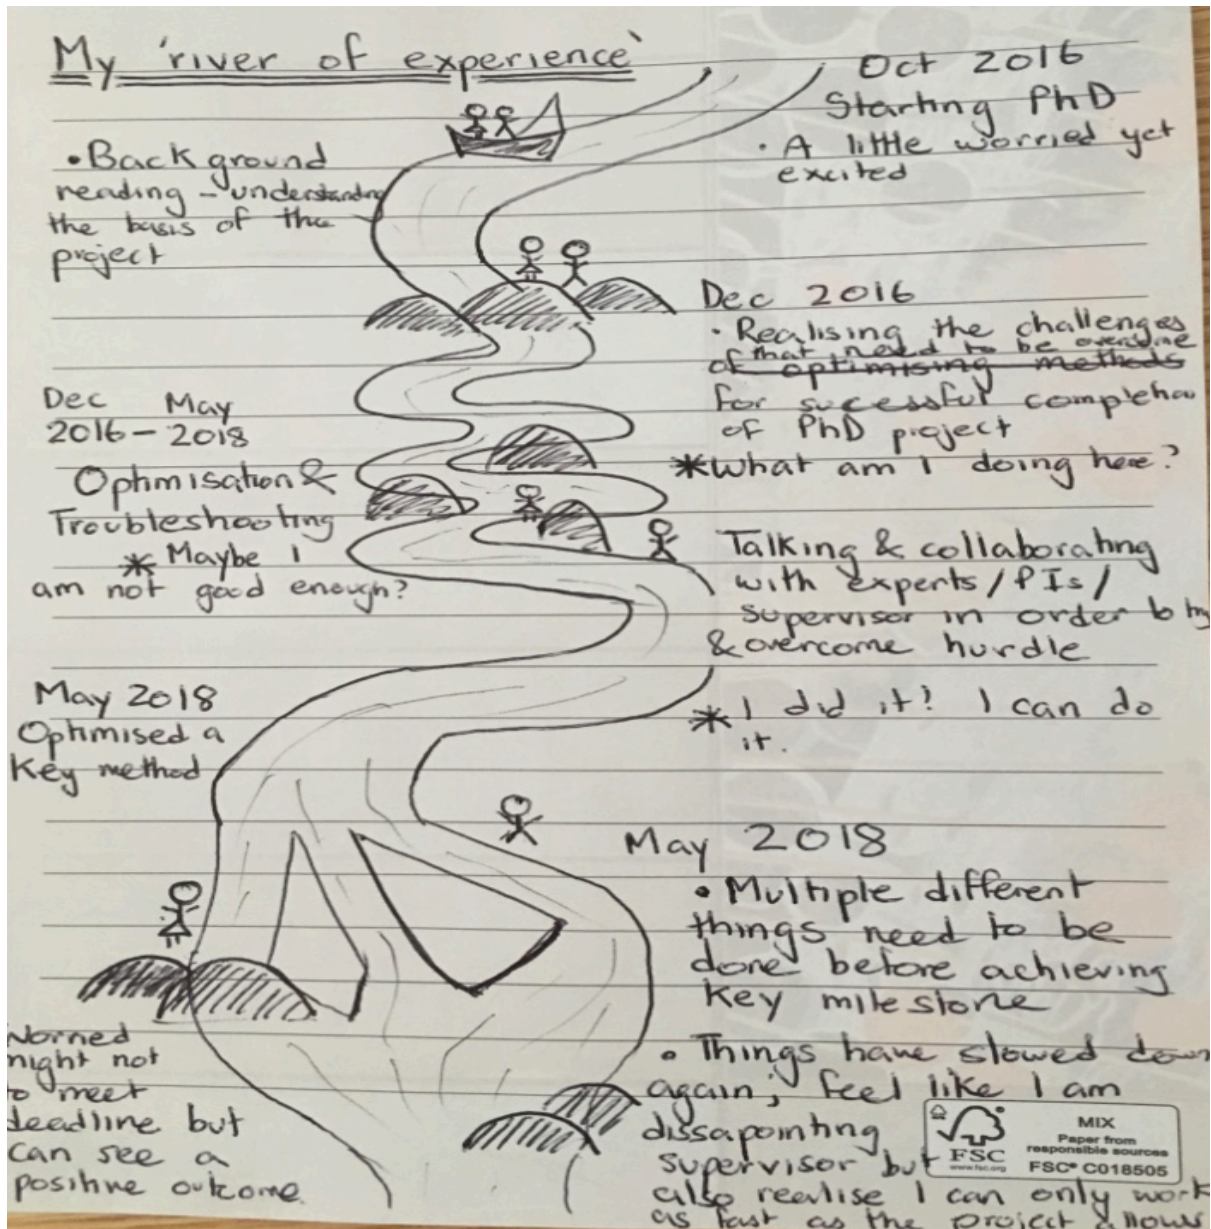 My 'river of experience'
Oct 2016
Starting PhD
· A little worried yet
excited
• Background
reading - understanding
the basis of the
project
Dec 2016
· Realising the challenges
that need to be overcome
of optimising methods
for sucessful
of PhD project
* What am I doing here?
Dec May
2016 - 2018
Optimisation &
Troubleshooting
* Maybe I
am not good enough?
Talking & collaborating
with experts / PIs /
supervisor in order to
& overcome hurdle
* I did it? I can do
it.
May 2018
Optimised a
Key method
May 2018
• Multiple different
things need to be
done before achieving
Key milestone
• Things have slowed down
again; feel like I am
dissapointing
supervisor but
also realise I can only work
as fast as the project allows
Worried
might not
to meet
deadline but
can see a
positive outcome.
FSC
www.fsc.org
MIX
Paper from
responsible sources
FSC® C018505